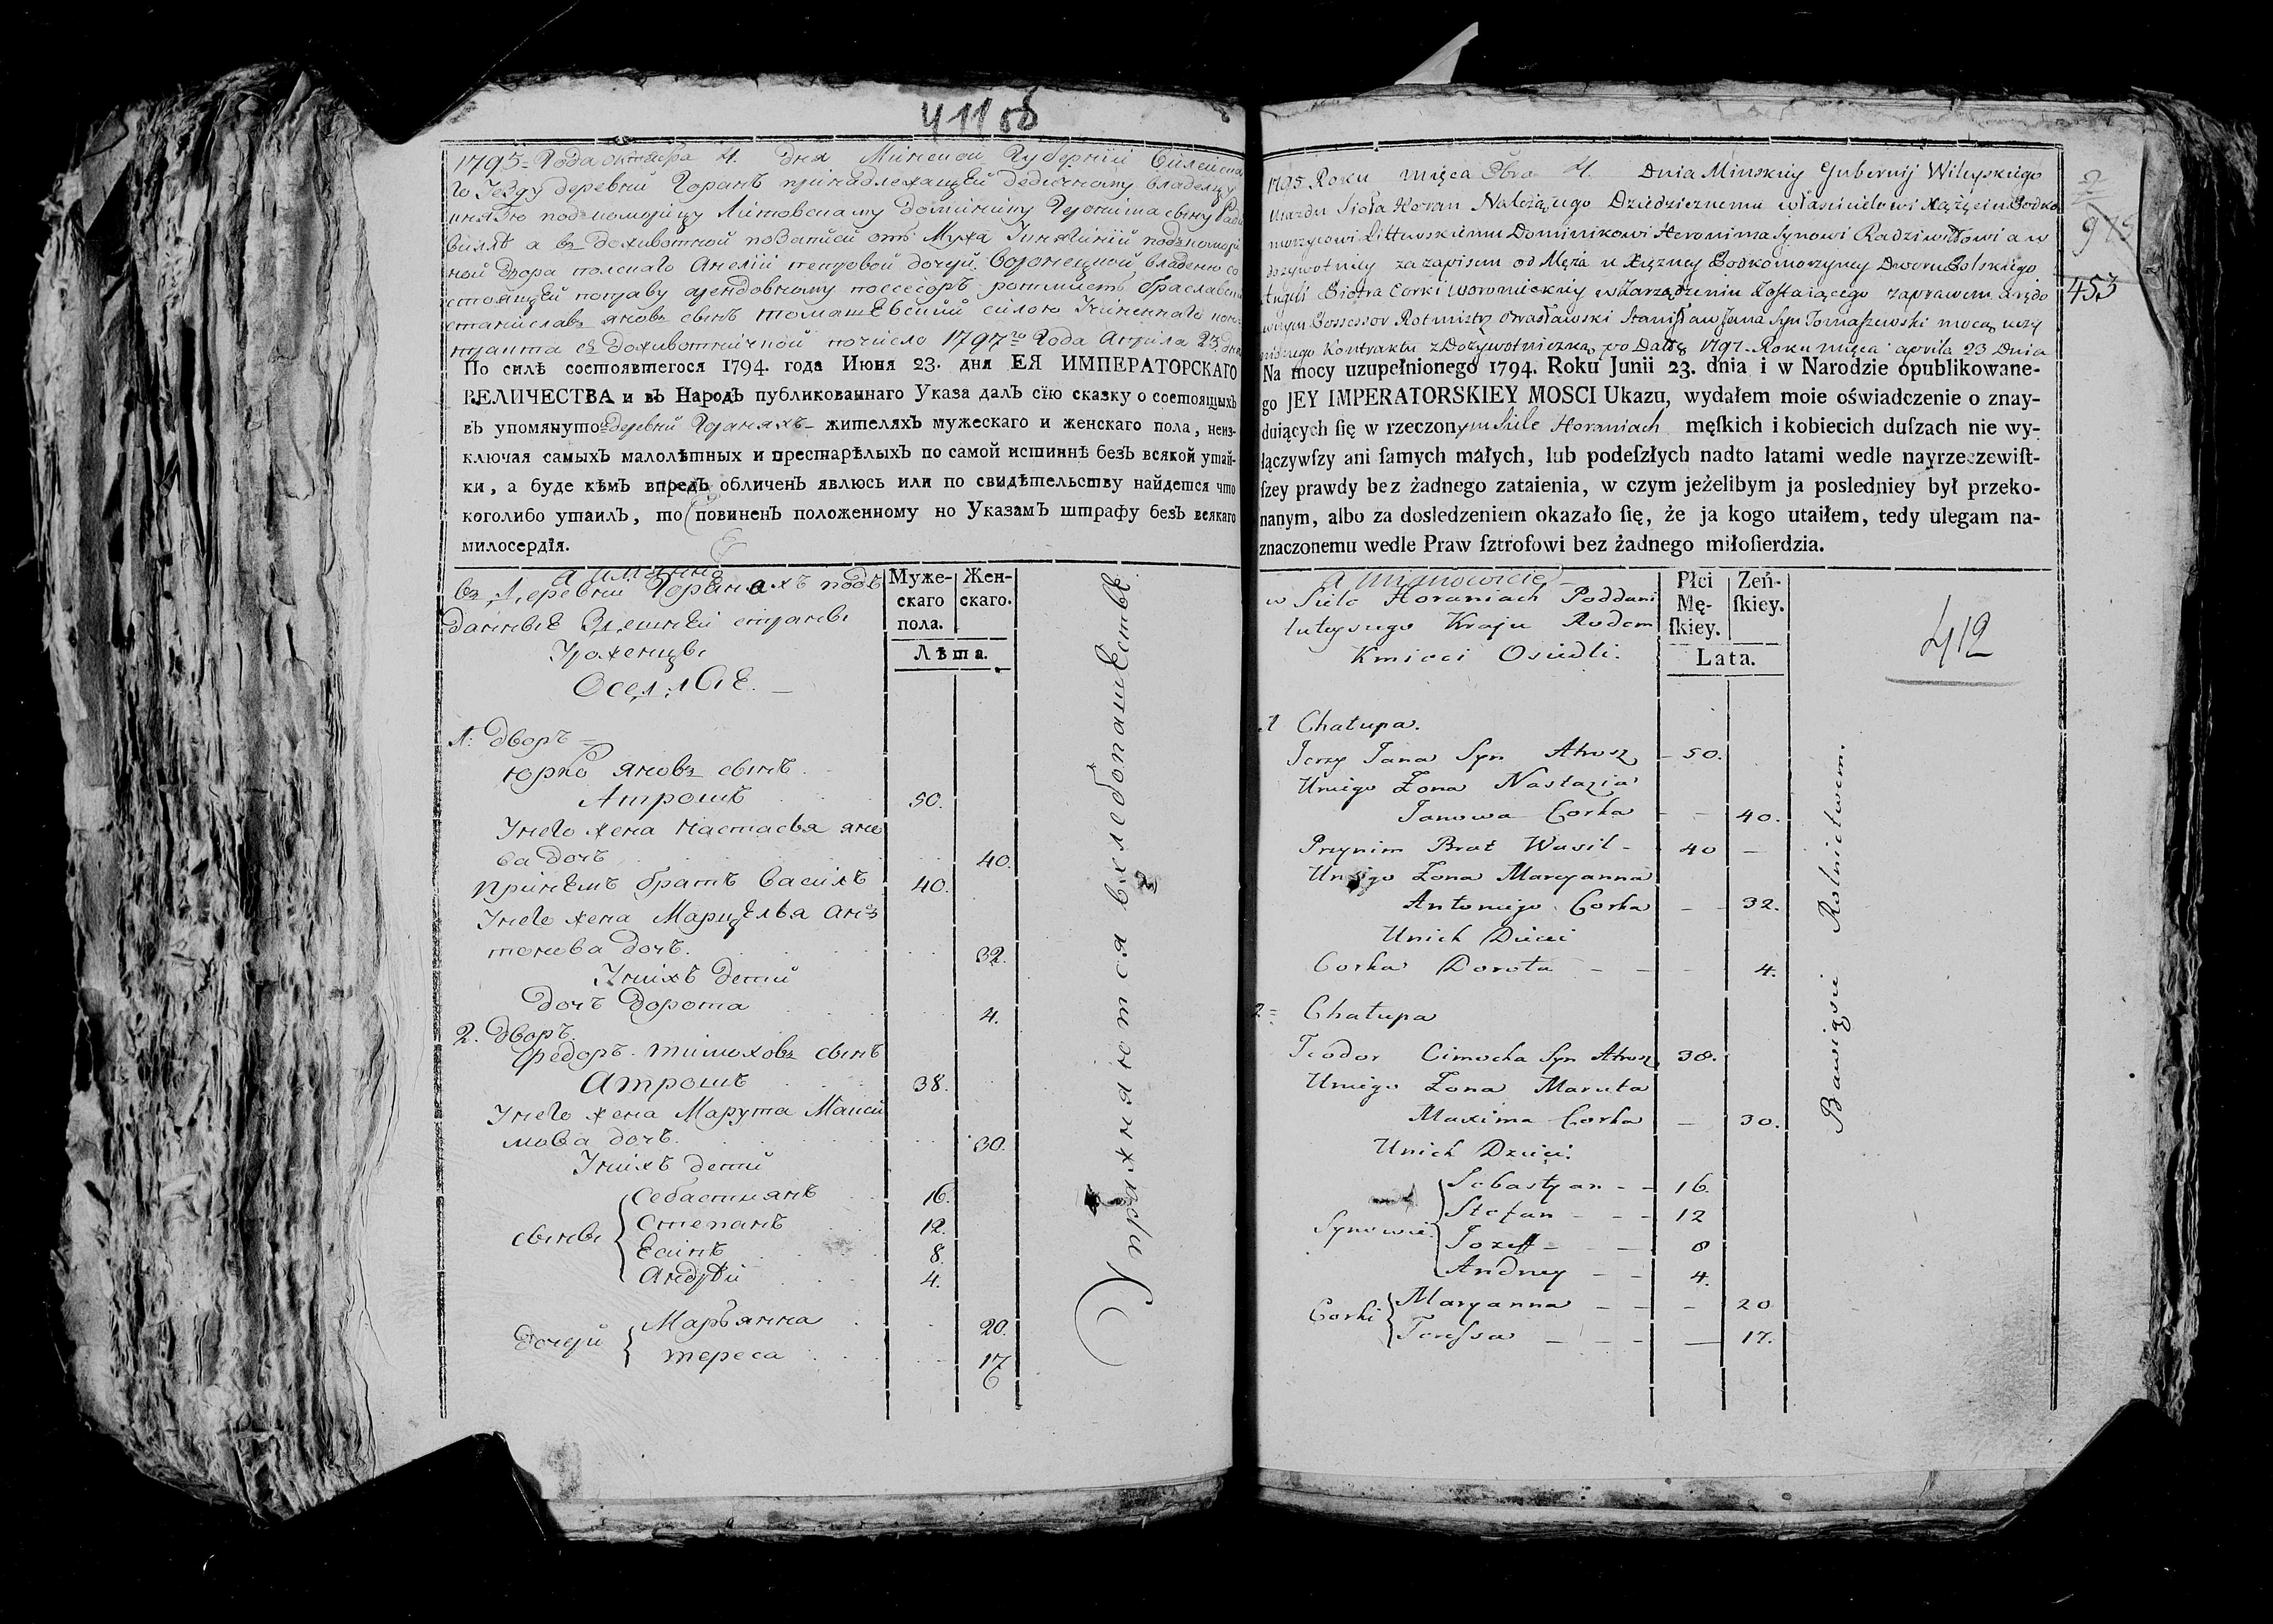 411 об
1795 = Года октября 4. дня Минской Губернїи Вилейска
го Уезду деревни Горанъ принадлежащей дедичному владелцу
князю подкоморицу Литовскому доминику Иеронима сыну Радзи
виллѣ а въ доживотной позаписи отъ Мужа Княгинїи подкомори
ной двора полскаго Анелїи петровой дочери владенїю со
стоящей поправу арендовному поссесоръ ротмистъ браславски
станиславъ яновъ сынъ томашевский силою Учиненнаго кон
тракта съ доживотничкой почисло 1797го Года Априла 23 дня
По силѣ состоявшегося 1794. года Июня 23. дня ЕЯ ИМПЕРАТОРСКАГО
ВЕЛИЧЕСТВА и въ Народъ публикованнаго Указа далъ сїю сказку о состоящыхъ
въ упомянутой деревни Гораняхъ жителяхъ мужескаго и женскаго пола, неиз-
ключая самыхъ малолѣтных и престарѣлыхъ по самой истиннѣ безъ всякой утай-
ки, а буде кѣмъ впредъ обличенъ явлюсь или по свидѣтельству найдется что
коголибо утаилъ, то повиненъ положенному по Указамъ штрафу безъ всякаго
милосердїя.
а имянно
въ Деревни Горанахъподъ
данные Здешней страны
Уроженцы
Оселлые.
Муже-
скаго
пола.
Жен-
скаго.
Лѣта.
1: дворъ =
юрко яновъ сынъ
Атрошъ 50.
Унего жена настасья яно
ва дочъ 40.
принемъ братъ василъ 40.
Унего жена Марцелья анъ
тонева дочъ. 32.
Унихъ дети
дочъ дорота 4.
2. дворъ.
федоръ тимоховъ сынъ
Атрошъ 38.
Унего жена Марута Макси
мова дочъ. 30.
Унихъ дети
сыны
Себастиянъ 16.
Степанъ 12.
Есипъ 8.
Андрѣй 4.
дочери
Марьянна 20.
тереса 17
Упражняются вхлебопашестве
1795 Roku mięca 8bra 4. Dnia Minskiey Gubernij Wileyskiego
Ujazdu Sioła Horan Należącego Dziedzicznemu właścicielowi Xążęciu Podko
morzycowi Littewskiemu Dominikowi Heronima Synowi Radziwiłłowi a w
dożywotniey za zapisem od Męża u Xiężney Podkomorzyney Dworu Polskiego
Angeli Piotra Corki w Zarządzeniu Zostaiącego zaprawem arędo
wnym Possessor Rotmistrz Brasławski Stanisław Jana Syn Tomaszewski mocą uczy
nionego Kontraktu z Dożywotniczką po Datę 1797. Roku mięca aprila 23 Dnia
Na mocy uzupełnionego 1794. Roku Junii 23. dnia i w Narodzie opublikowane-
go JEY IMPERATORSKIEY MOSCI Ukazu, wydałem moie oświadczenie o znay-
duiących ſię w rzeczonym Siele Horaniach męſkich i kobiecich duſzach nie wy-
łączywſzy ani ſamych małych, lub podeſzłych nadto latami wedle nayrzeczewiſt-
ſzey prawdy bez żadnego zataienia, w czym jeżelibym ja posledniey był przeko-
nanym, albo za dosledzeniem okazało ſię, że ja kogo utaiłem, tedy ulegam na-
znaczonemu wedle Praw ſztrofowi bez żadnego miłoſierdzia.
2
975
453
a mianowicie
w Siele Horaniach Poddani
tuteysego Kraju Rodem
Kmieci Osiedli.
Płci
Mę-
ſkiey.
Żeń-
ſkiey.
Lata.
412
1 Chałupa.
Jerzy Jana Syn Atrosz 50.
Uniego Żona Nastazia
Janowa Corka 40.
Przynim Brat Wasil 40
Uniego Żona Maryanna
Antoniego Corka 32.
Unich Dzieci
Corka Dorota 4.
2 = Chałupa
Teodor Cimocha Syn Atrosz 38.
Uniego Żona Maruta
Maxima Corka 30.
Unich Dzieci.
Synowie
Sebastyan 16.
Stefan 12
Jozeff 8
Andrzey 4.
Corki
Maryanna 20
Teressa 17.
Bawiąsie Rolnictwem.